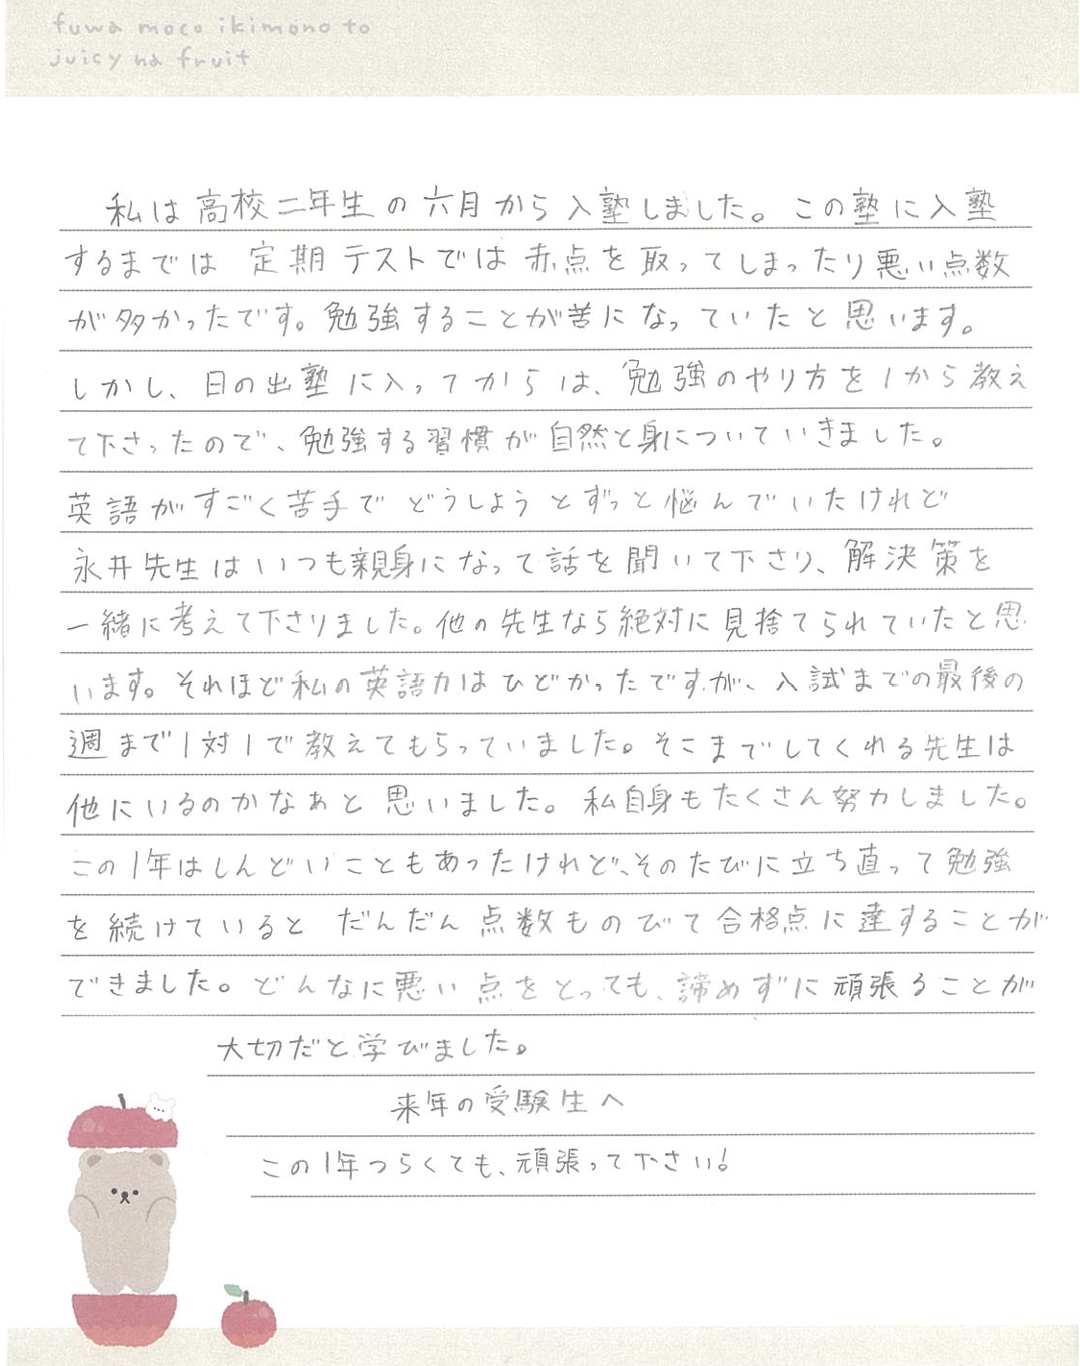 fuwa moco ikimono to
juicy na fruit
私は高校二年生の六月から入塾しました。この塾に入塾
するまでは 定期テストでは赤点を取ってしまったり悪い点数
が多かったです。勉強することが苦になっていたと思います。
しかし、日の出塾に入ってからは、勉強のやり方を1から教え
て下さったので、勉強する習慣が自然と身についていきました。
英語がすごく苦手でどうしようとずっと悩んでいたけれど
永井先生はいつも親身になって話を聞いて下さり、解決策を
一緒に考えて下さりました。他の先生なら絶対に見捨てられていたと思
います。それほど私の英語力はひどかったですが、入試までの最後の
週まで1対1で教えてもらっていました。そこまでしてくれる先生は
他にいるのかなぁと思いました。私自身もたくさん努力しました。
この1年はしんどいこともあったけれど、そのたびに立ち直って勉強
を続けていると だんだん点数ものびて合格点に達することが
できました。どんなに悪い点をとっても、諦めずに頑張ることが
大切だと学びました。
来年の受験生へ
この1年つらくても、頑張って下さい!